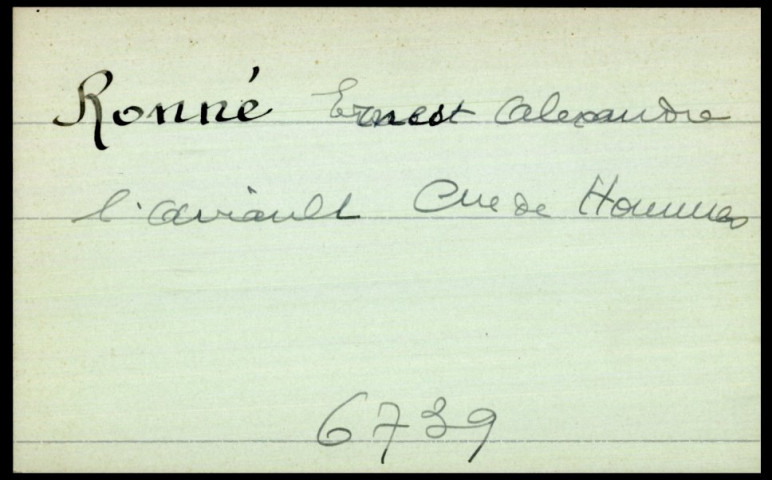 Ronné Ernest Alexandre
l'aviault Cne de Hommes
6739